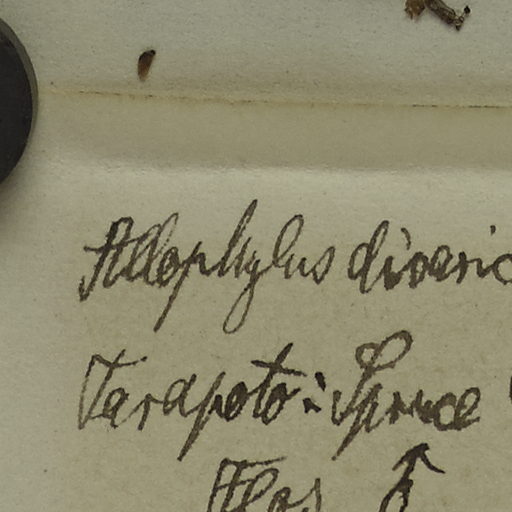 Allophylus divaric
Tarapoto: Spruce
Flos ♂